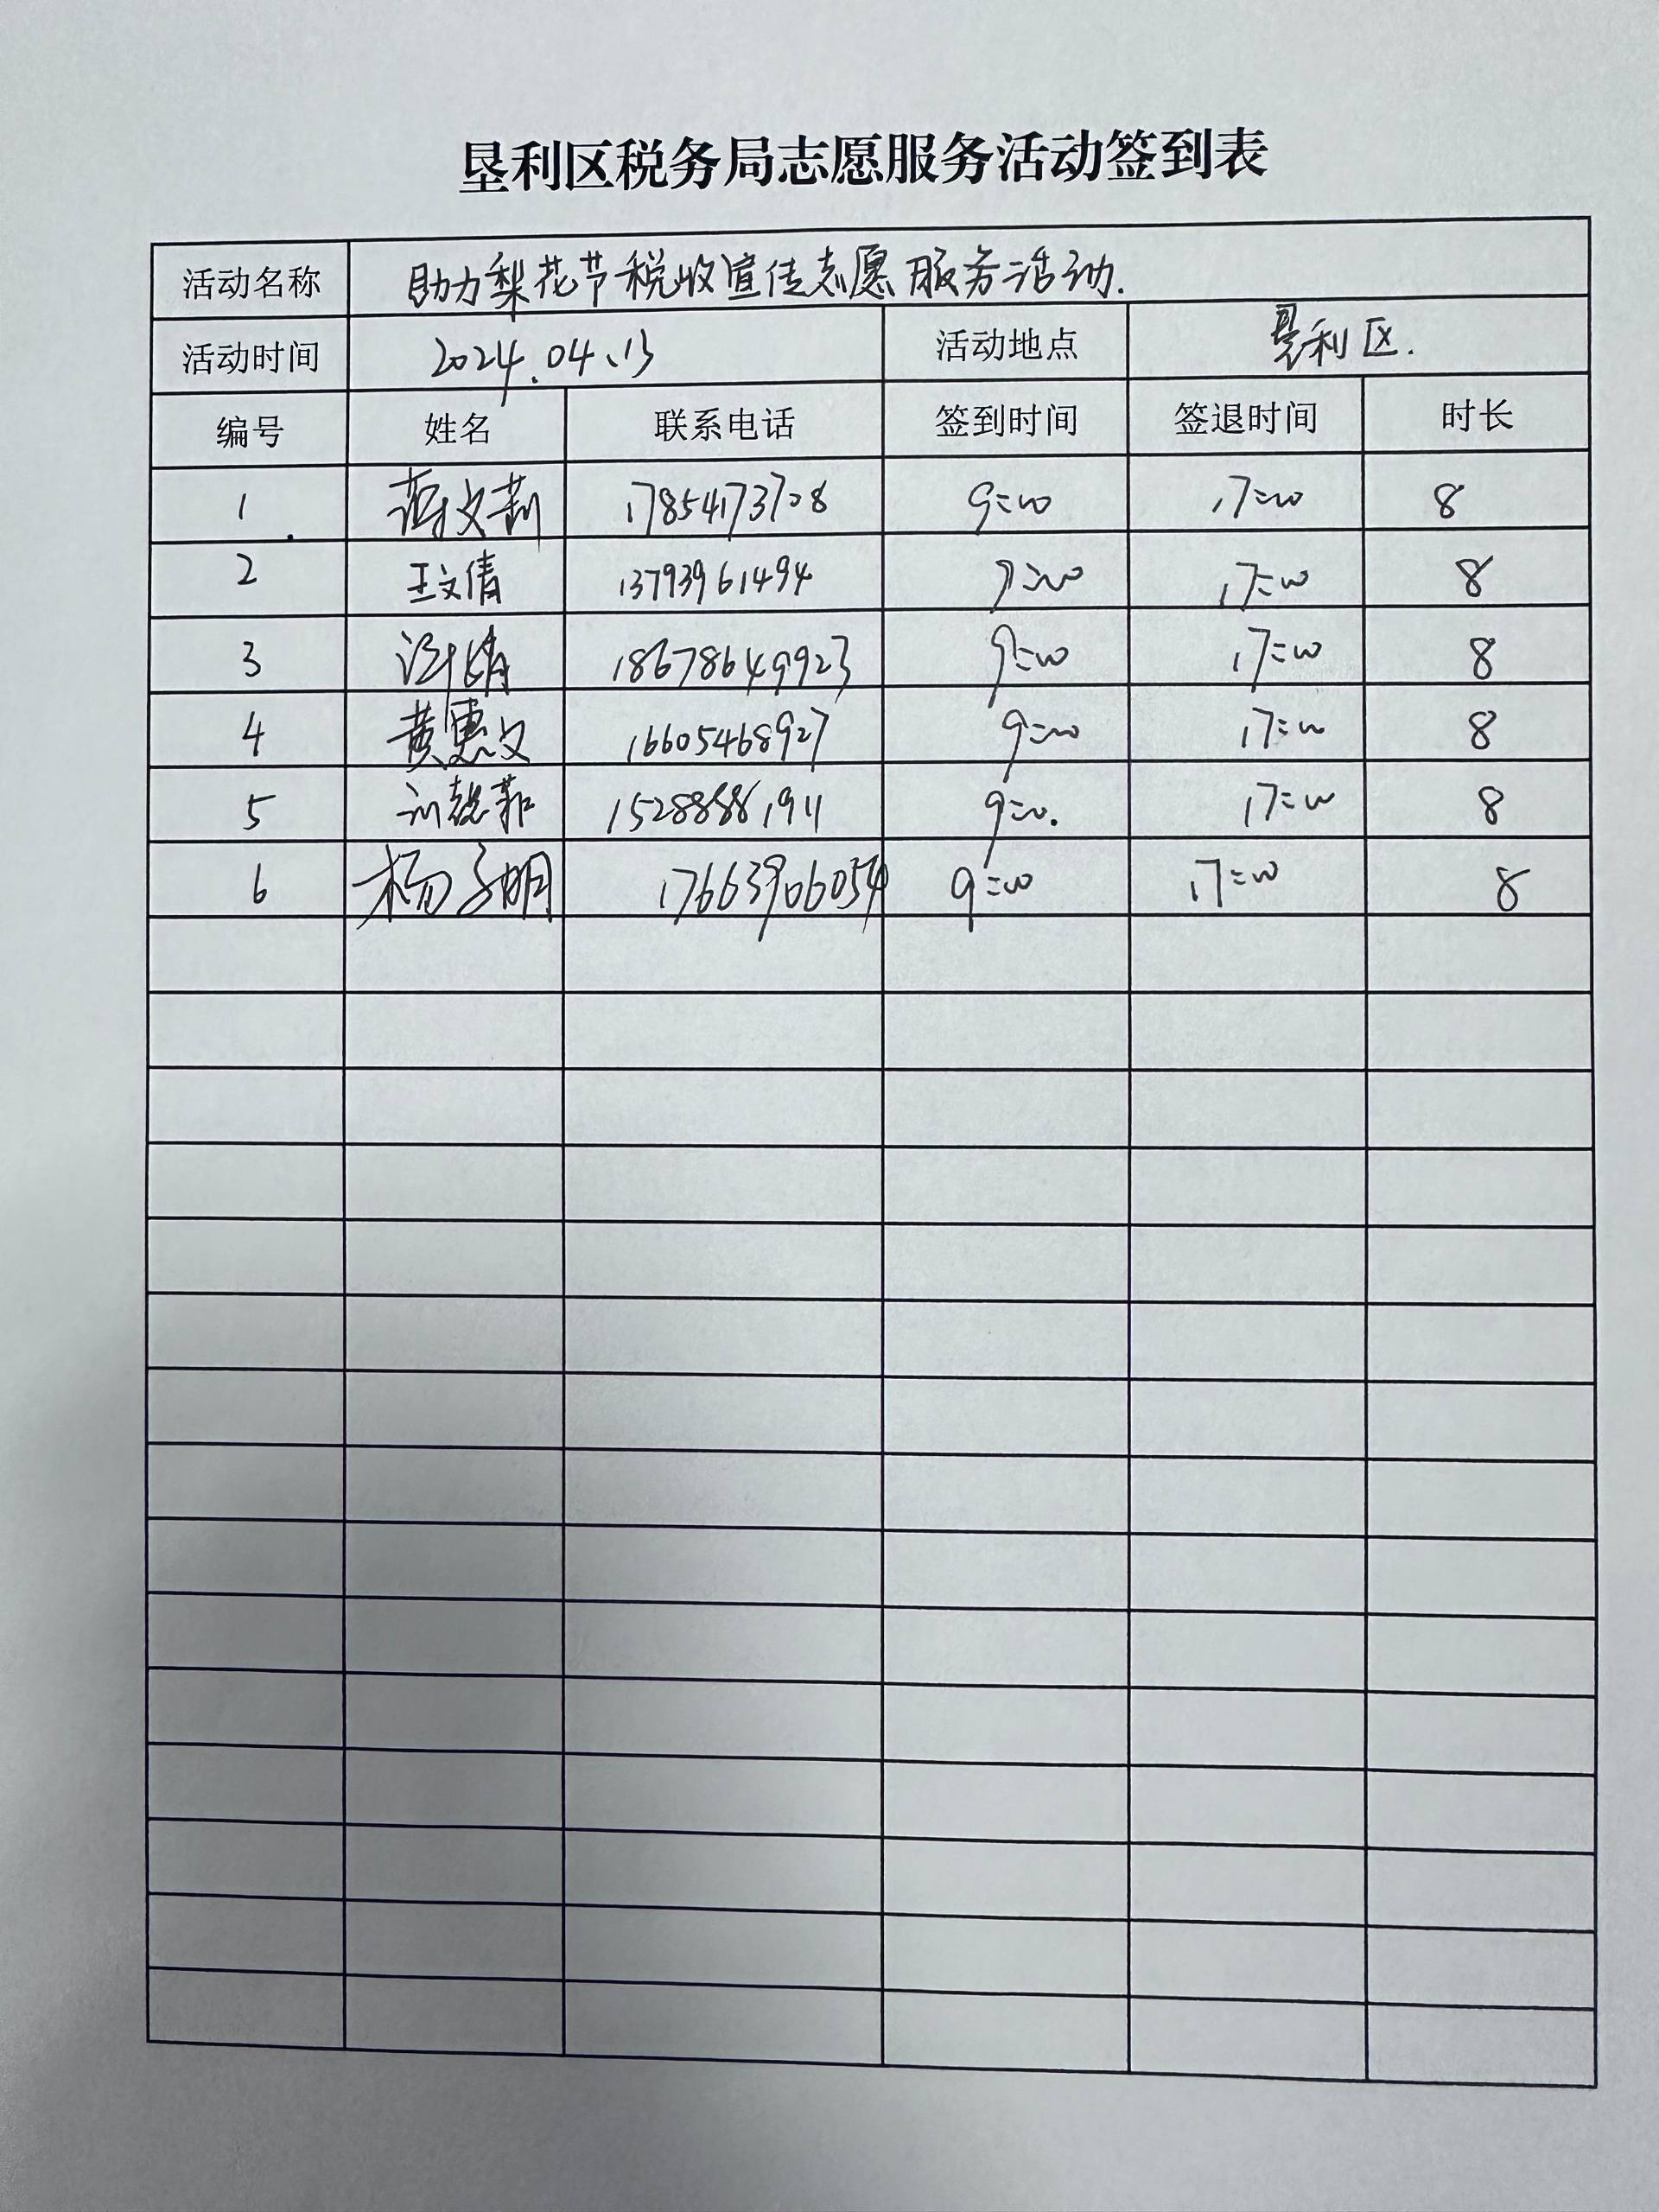 垦利区税务局志愿服务活动签到表
活动名称 助力梨花节税收宣传志愿服务活动.
活动时间 2024.04.13 活动地点 垦利区.
编号 姓名 联系电话 签到时间 签退时间 时长
1 17854173708 9:00 17:00 8
2 王文倩 13793961494 9:00 17:00 8
3 18678649923 9:00 17:00 8
4 黄惠文 16605468927 9:00 17:00 8
5 15288881911 9:00. 17:00 8
6 杨子明 17663906054 9:00 17:00 8